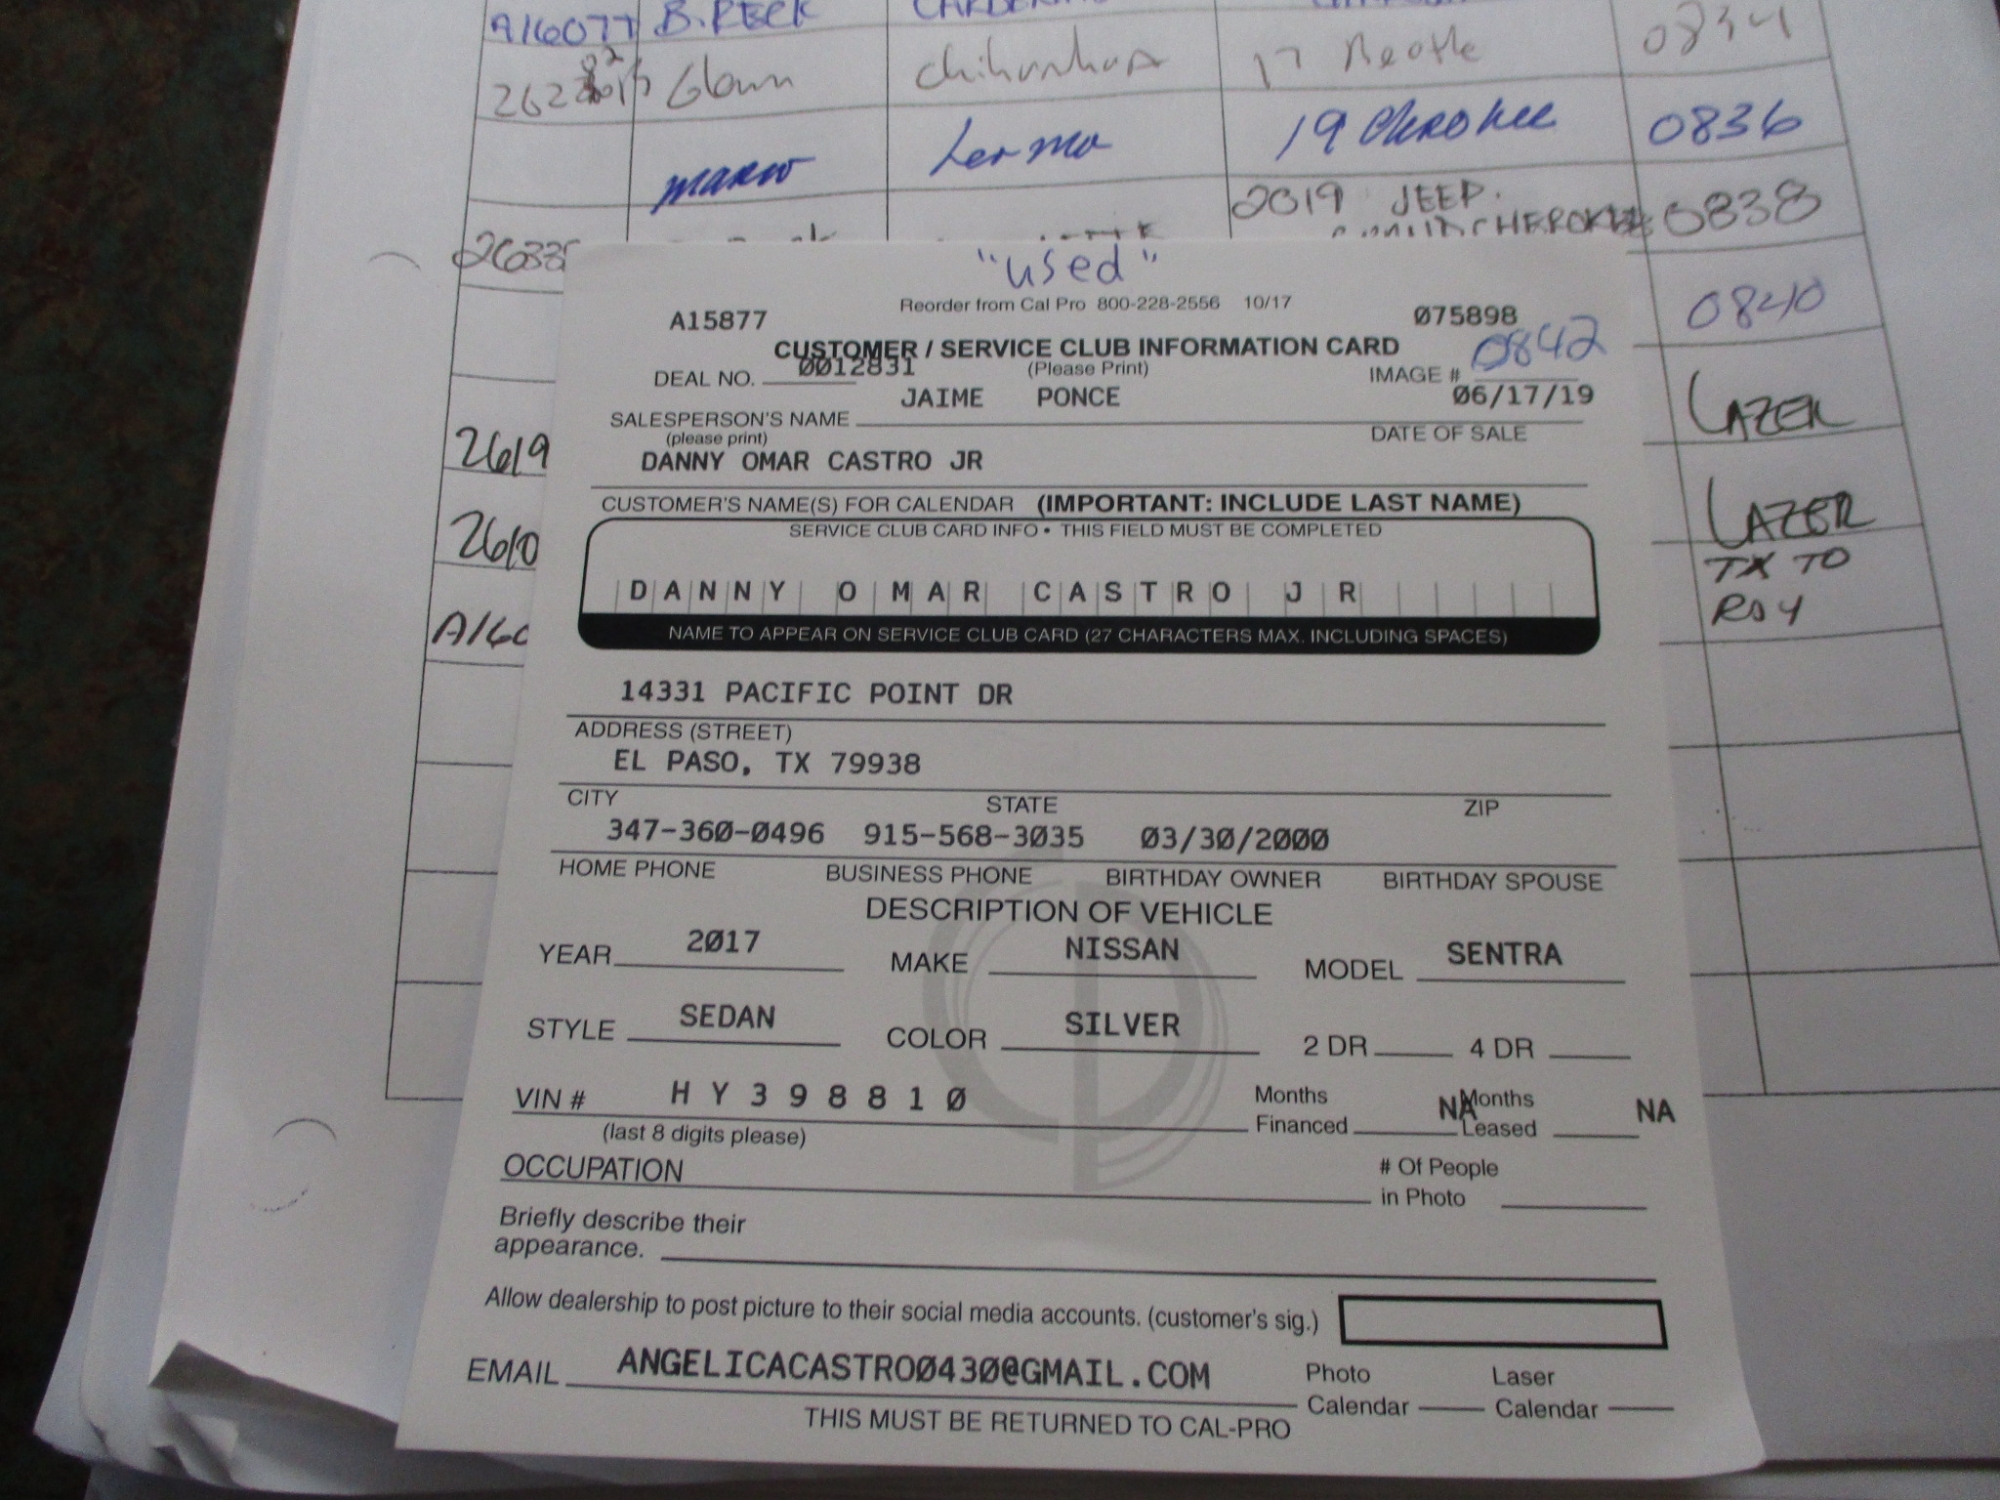 A16077 B. PECK
Glenn chihuahua 17 Beetle 0834
mario Lerma 19 Cherokee 0836
2019 JEEP.
CHEROKEE 0838
0840
2619 LAZER
2610 LAZER
TX TO
ROY
"used"
Reorder from Cal Pro 800-228-2556 10/17
A15877 075898
CUSTOMER / SERVICE CLUB INFORMATION CARD
DEAL NO. 0012831 (Please Print) IMAGE # 0842
JAIME PONCE 06/17/19
SALESPERSON'S NAME DATE OF SALE
(please print)
DANNY OMAR CASTRO JR
CUSTOMER'S NAME(S) FOR CALENDAR (IMPORTANT: INCLUDE LAST NAME)
SERVICE CLUB CARD INFO • THIS FIELD MUST BE COMPLETED
DANNY OMAR CASTRO JR
NAME TO APPEAR ON SERVICE CLUB CARD (27 CHARACTERS MAX. INCLUDING SPACES)
14331 PACIFIC POINT DR
ADDRESS (STREET)
EL PASO, TX 79938
CITY STATE ZIP
347-360-0496 915-568-3035 03/30/2000
HOME PHONE BUSINESS PHONE BIRTHDAY OWNER BIRTHDAY SPOUSE
DESCRIPTION OF VEHICLE
YEAR 2017 MAKE NISSAN MODEL SENTRA
STYLE SEDAN COLOR SILVER 2 DR 4 DR
VIN # H Y 3 9 8 8 1 0 Months Financed NA Months Leased NA
(last 8 digits please)
OCCUPATION # Of People
in Photo
Briefly describe their
appearance.
Allow dealership to post picture to their social media accounts. (customer's sig.)
EMAIL ANGELICACASTRO0430@GMAIL.COM Photo Calendar Laser Calendar
THIS MUST BE RETURNED TO CAL-PRO